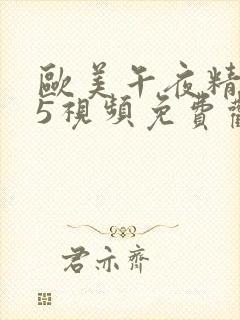 歐美午夜精
5視頻免費
君亦齊